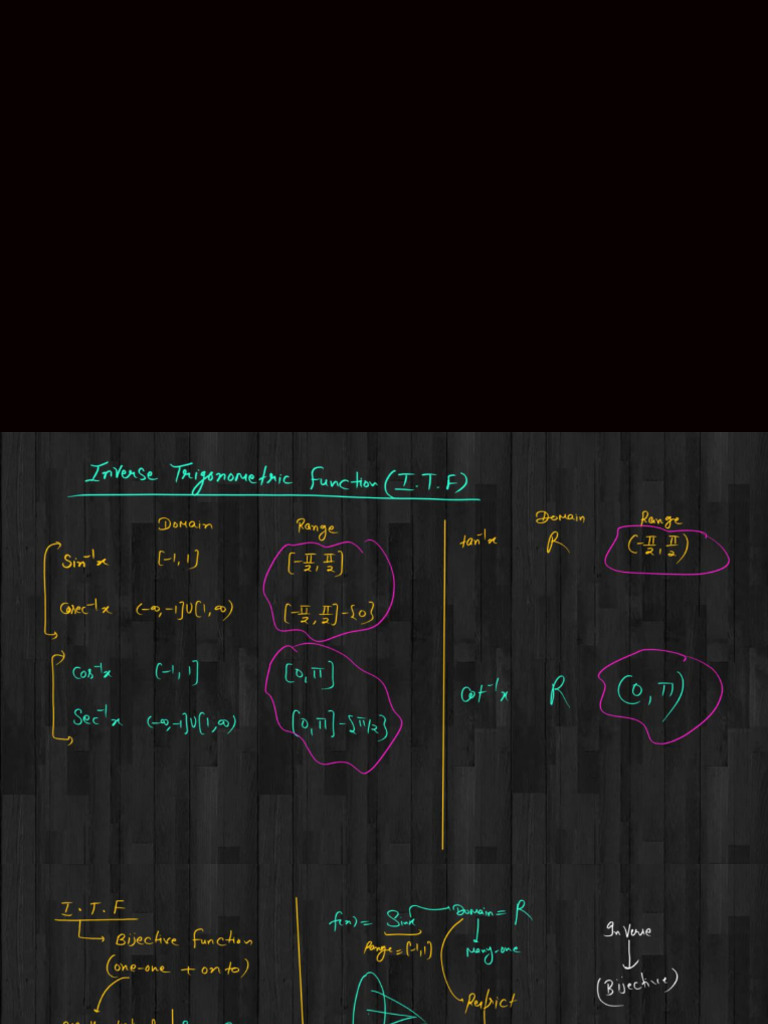 Inverse Trigonometric Function (I.T.F)
Domain Range
Sin⁻¹x [-1, 1] [-π/2, π/2]
Cosec⁻¹x (-∞, -1]∪[1, ∞) [-π/2, π/2]-{0}
Cos⁻¹x [-1, 1] [0, π]
Sec⁻¹x (-∞, -1]∪[1, ∞) [0, π]-{π/2}
Domain Range
tan⁻¹x R (-π/2, π/2)
Cot⁻¹x R (0, π)
I.T.F
Bijective function
(one-one + onto)
f(x) = Sinx Domain = R
Range = [-1, 1] many-one
Restrict
Inverse
(Bijective)